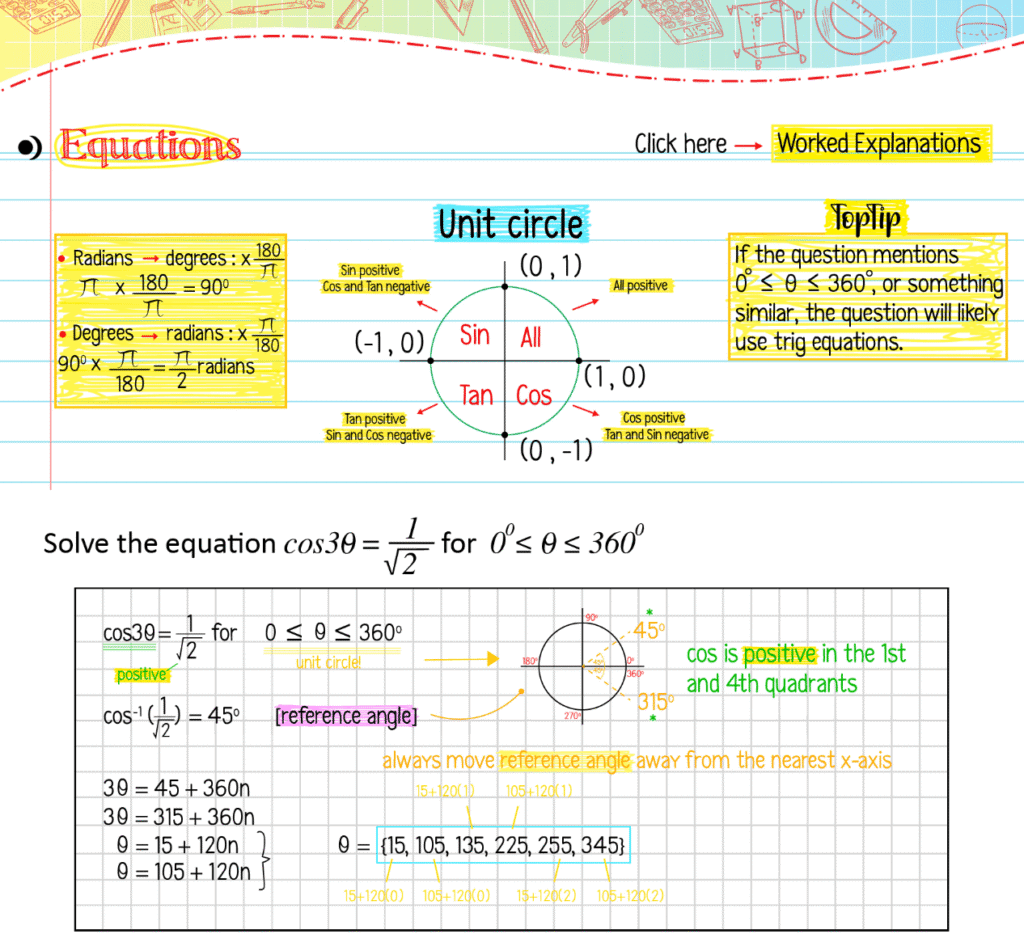 Equations
Click here → Worked Explanations
• Radians → degrees : x 180/π
π x 180/π = 90⁰
• Degrees → radians : x π/180
90⁰ x π/180 = π/2 radians
Unit circle
Sin positive
Cos and Tan negative
(0 , 1)
All positive
(-1, 0)
Sin
All
Tan
Cos
(1, 0)
Tan positive
Sin and Cos negative
(0 , -1)
Cos positive
Tan and Sin negative
TopTip
If the question mentions
0° ≤ θ ≤ 360°, or something
similar, the question will likely
use trig equations.
Solve the equation cos3θ = 1/√2 for 0⁰ ≤ θ ≤ 360⁰
cos3θ = 1/√2 for 0 ≤ θ ≤ 360⁰
positive
unit circle!
cos⁻¹(1/√2) = 45⁰ [reference angle]
90⁰
180⁰
0⁰
360⁰
270⁰
*
45⁰
315⁰
*
cos is positive in the 1st
and 4th quadrants
always move reference angle away from the nearest x-axis
3θ = 45 + 360n
3θ = 315 + 360n
θ = 15 + 120n
θ = 105 + 120n
15+120(1) 105+120(1)
θ = {15, 105, 135, 225, 255, 345}
15+120(0) 105+120(0) 15+120(2) 105+120(2)